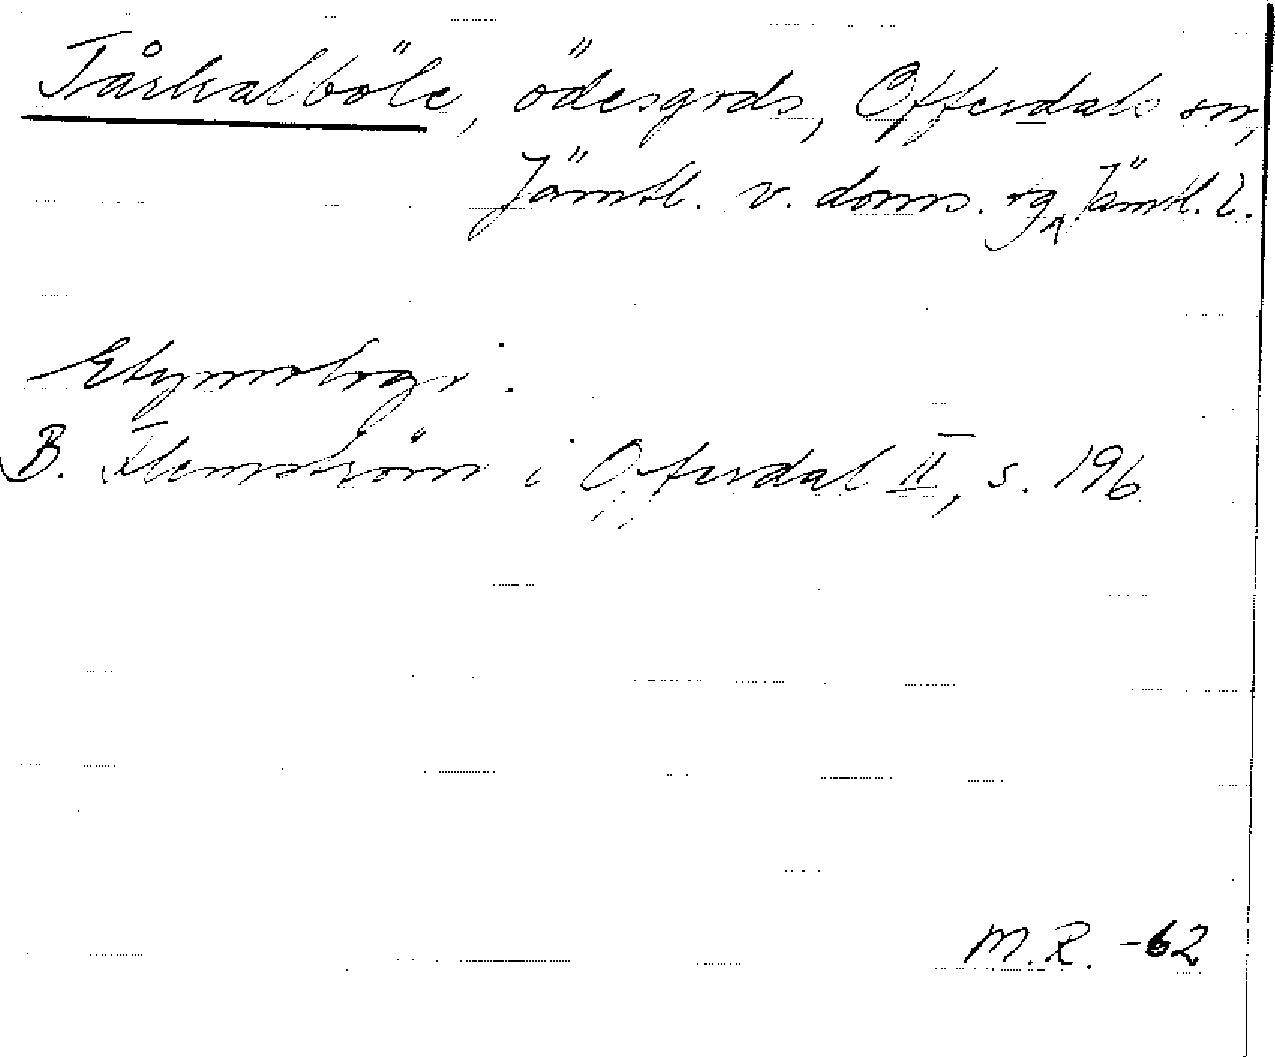 Tårkalböle, ödesgods, Offerdals sn,
Jämtl. v. doms. og, Jämtl. l.
Etymologi:
B. Flemström i Offerdal II, s. 196
M.R. -62